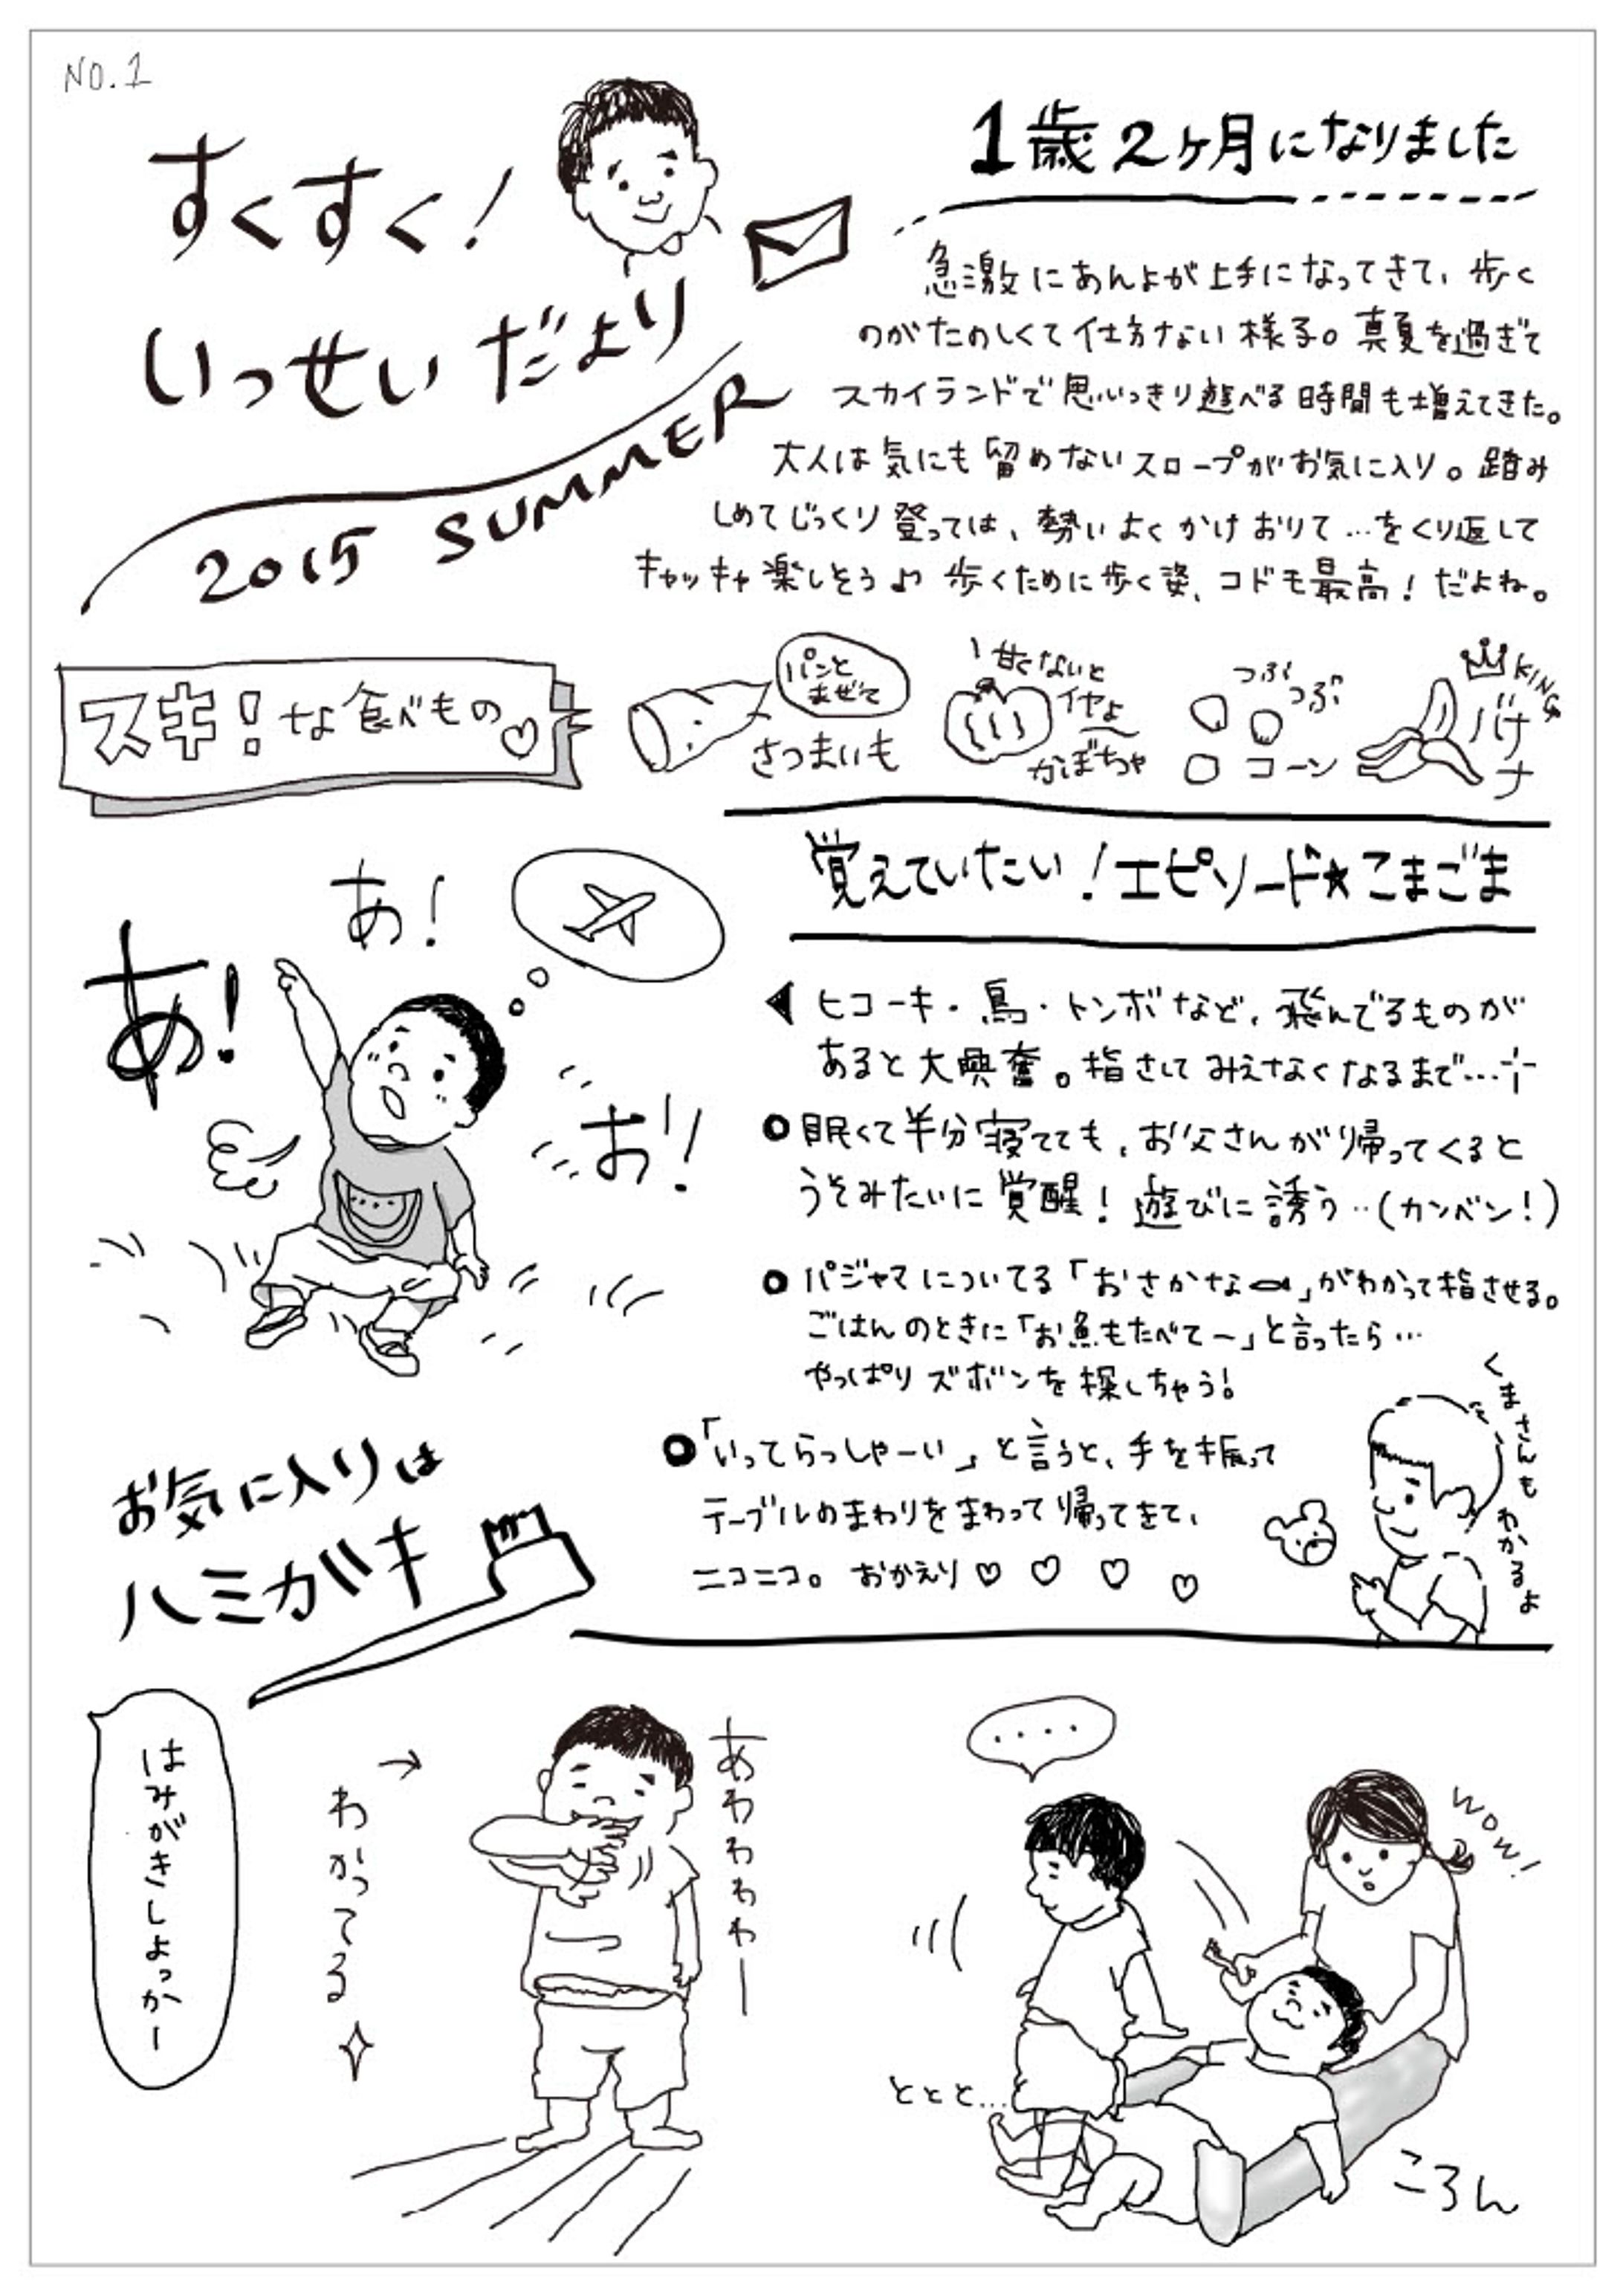 NO.1
すくすく！
いっせいだより
2015 SUMMER
1歳2ヶ月になりました
急激にあんよが上手になってきて、歩く
のがたのしくて仕方ない様子。真夏を過ぎて
スカイランドで思いっきり遊べる時間も増えてきた。
大人は気にも留めないスロープがお気に入り。踏み
しめてじっくり登っては、勢いよくかけおりて…をくり返して
キャッキャ楽しそう♪ 歩くために歩く姿、コドモ最高！だよね。
スキ！な食べもの♡
パンと
まぜて
さつまいも
甘くないと
イヤよ〜
かぼちゃ
つぶ
つぶ
コーン
KING
バナナ
覚えていたい！エピソード★こまごま
◀ヒコーキ・鳥・トンボなど、飛んでるものが
あると大興奮。指さしてみえなくなるまで…
あ！
あ！
お！
●眠くて半分寝てても、お父さんが帰ってくると
うそみたいに覚醒！遊びに誘う‥(カンベン！)
●パジャマについてる「おさかな」がわかって指させる。
ごはんのときに「お魚もたべて〜」と言ったら…
やっぱりズボンを探しちゃう！
●「いってらっしゃーい」と言うと、手を振って
テーブルのまわりをまわって帰ってきて、
ニコニコ。おかえり♡ ♡ ♡ ♡
くまさんも わかるよ
お気に入りは
ハミガキ
はみがきしよっかー
→
わかってる
あわわわわー
‥‥
WOW!
ととと…
ころん